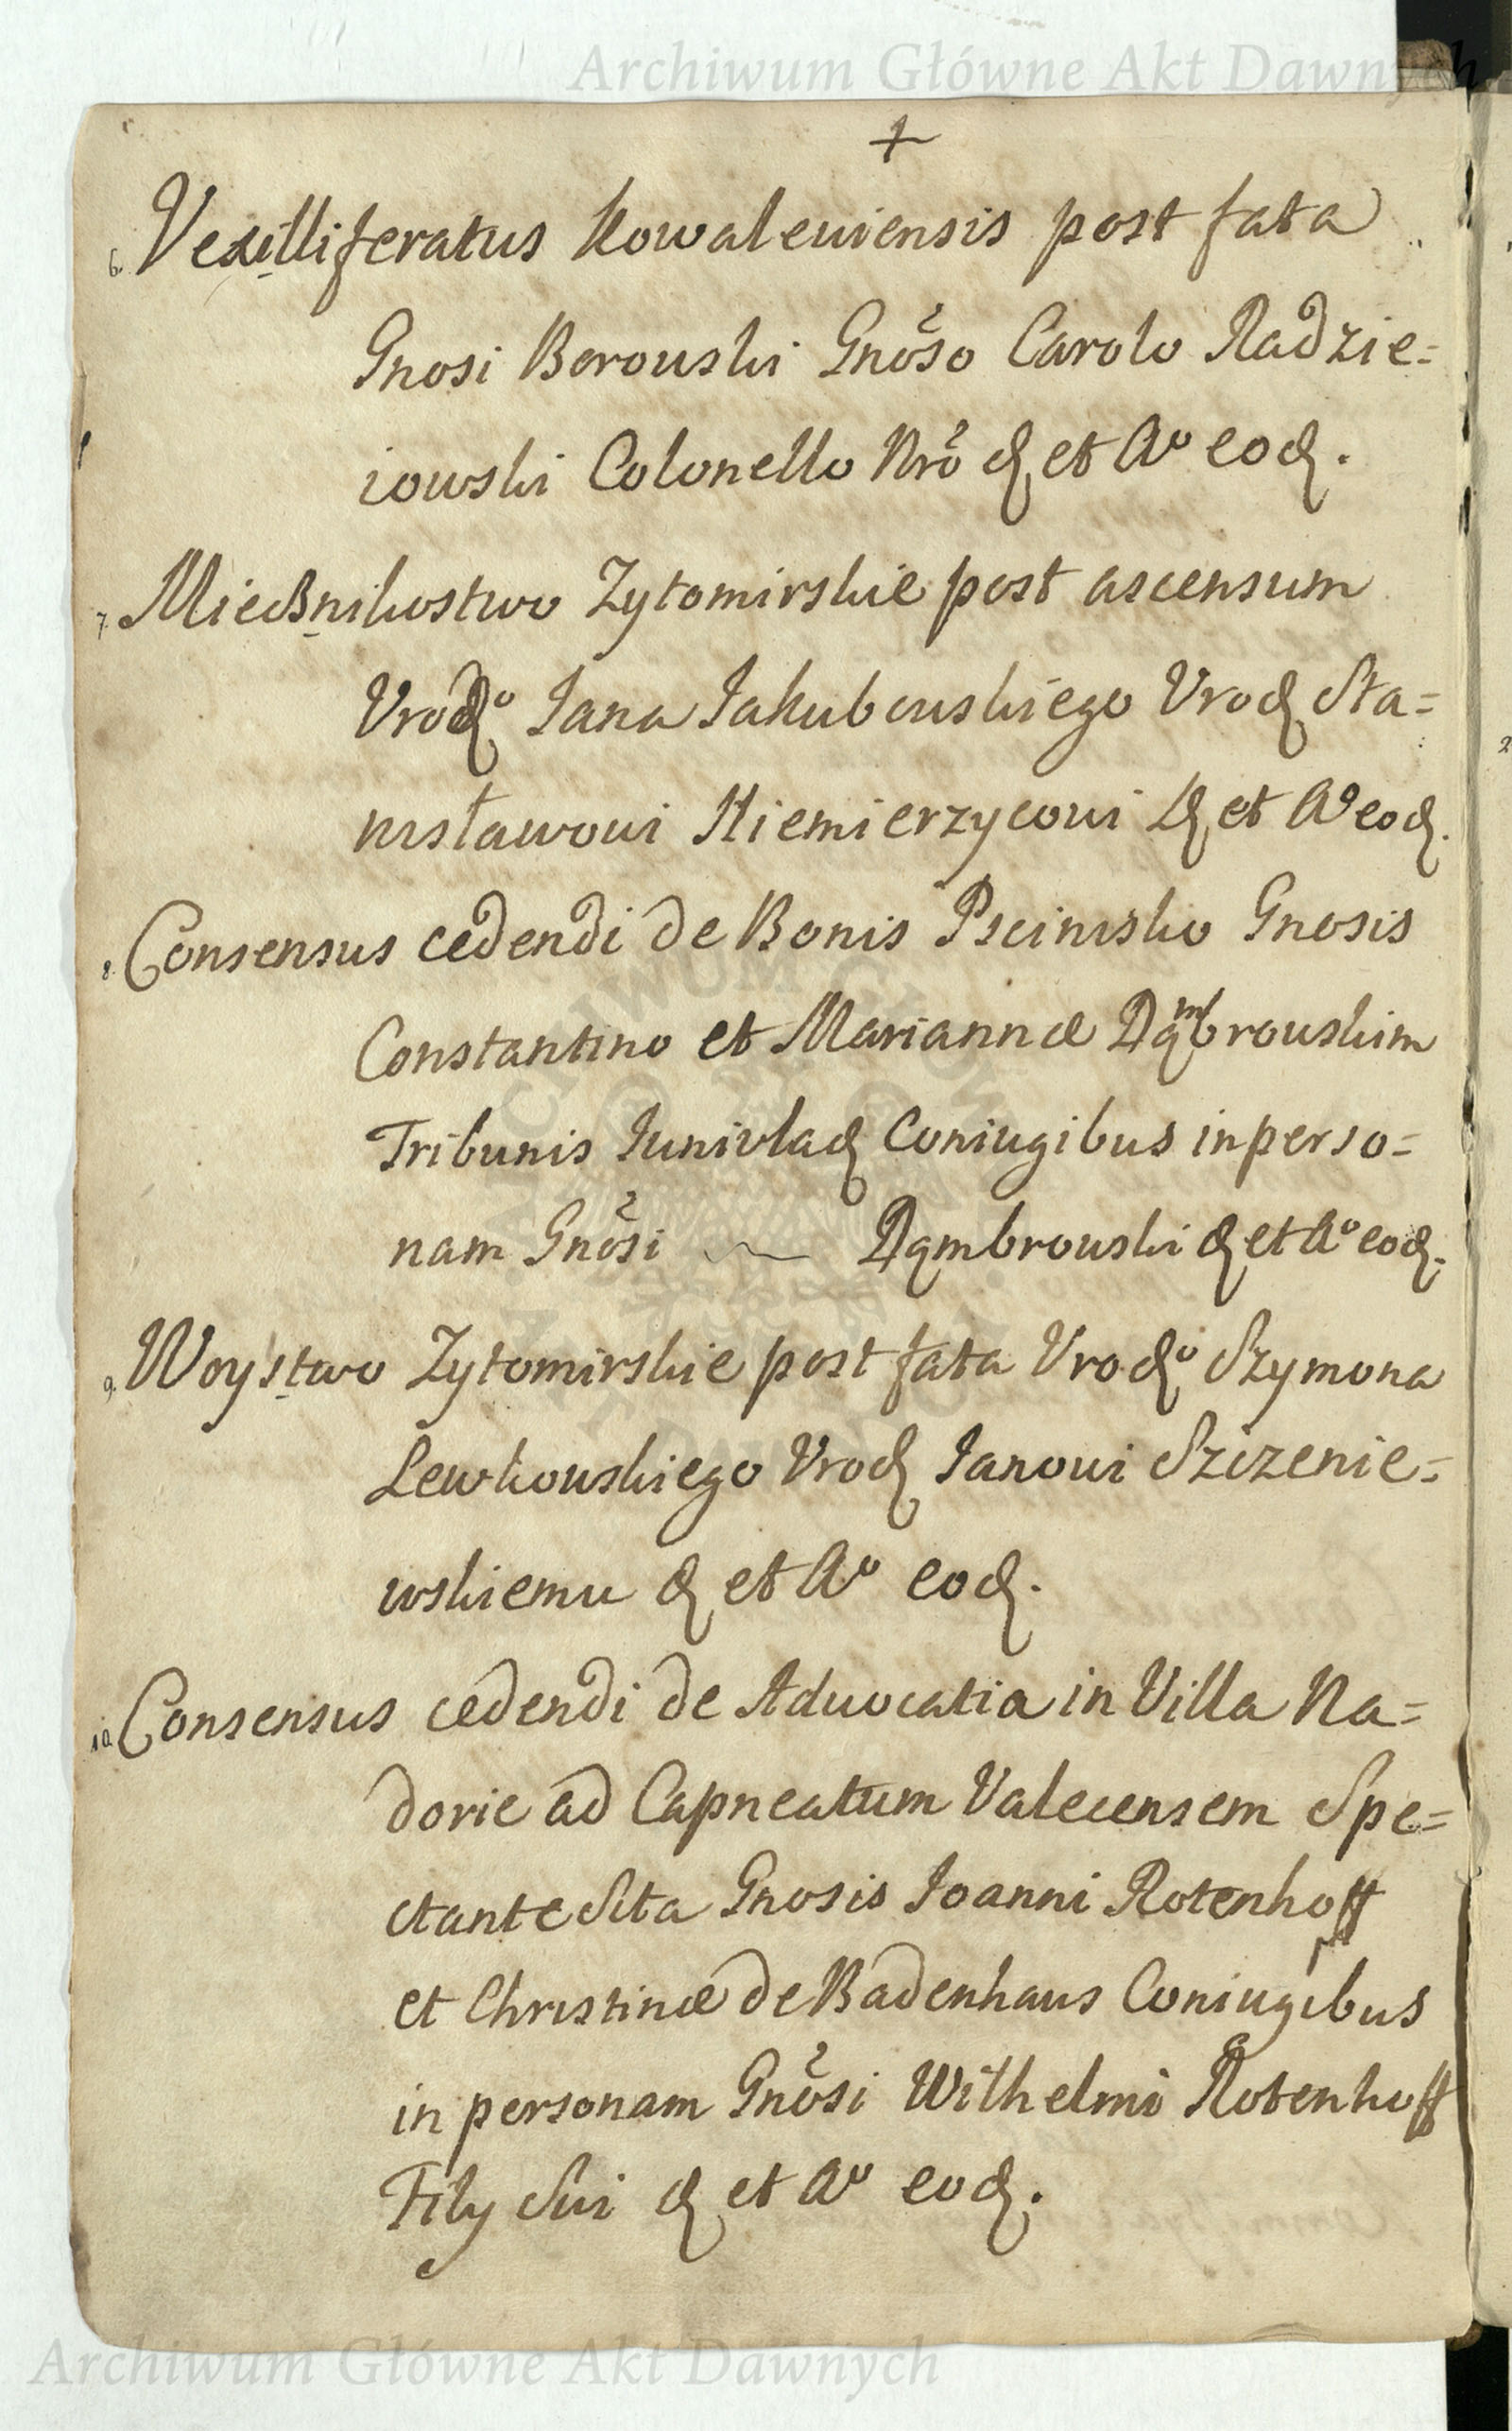 Archiwum Główne Akt Dawnych
+
6. Vexilliferatus Kowaleviensis post fata
Gnosi Borowski Gnõso Carolo Radzie=
iowski Colonello Nrõ d et Aº eod.
7. Miecznikostwo Zytomirskie post ascensum
Urodº Jana Jakubowskiego Urod Sta=
nisławowi Niemierzycowi d et Aº eod.
8. Consensus cedendi de Bonis Pscinisko Gnosis
Constantino et Mariannæ Dąmbrowskim
Tribunis Junivlad Coniugibus in perso=
nam Gnõsi Dąmbrowski d et Aº eod.
9. Woystwo Zytomirskie post fata Urodº Szymona
Lewkowskiego Urod Janowi Szczenie=
wskiemu d et Aº eod.
10. Consensus cedendi de Advocatia in Villa Na=
dorie ad Capneatum Valecensem Spe=
ctante Sita Gnosis Joanni Rotenhoff
et Christinæ de Badenhaus Coniugibus
in personam Gnõsi Wilhelmi Rotenhoff
Fily Sui d et Aº eod.
Archiwum Główne Akt Dawnych